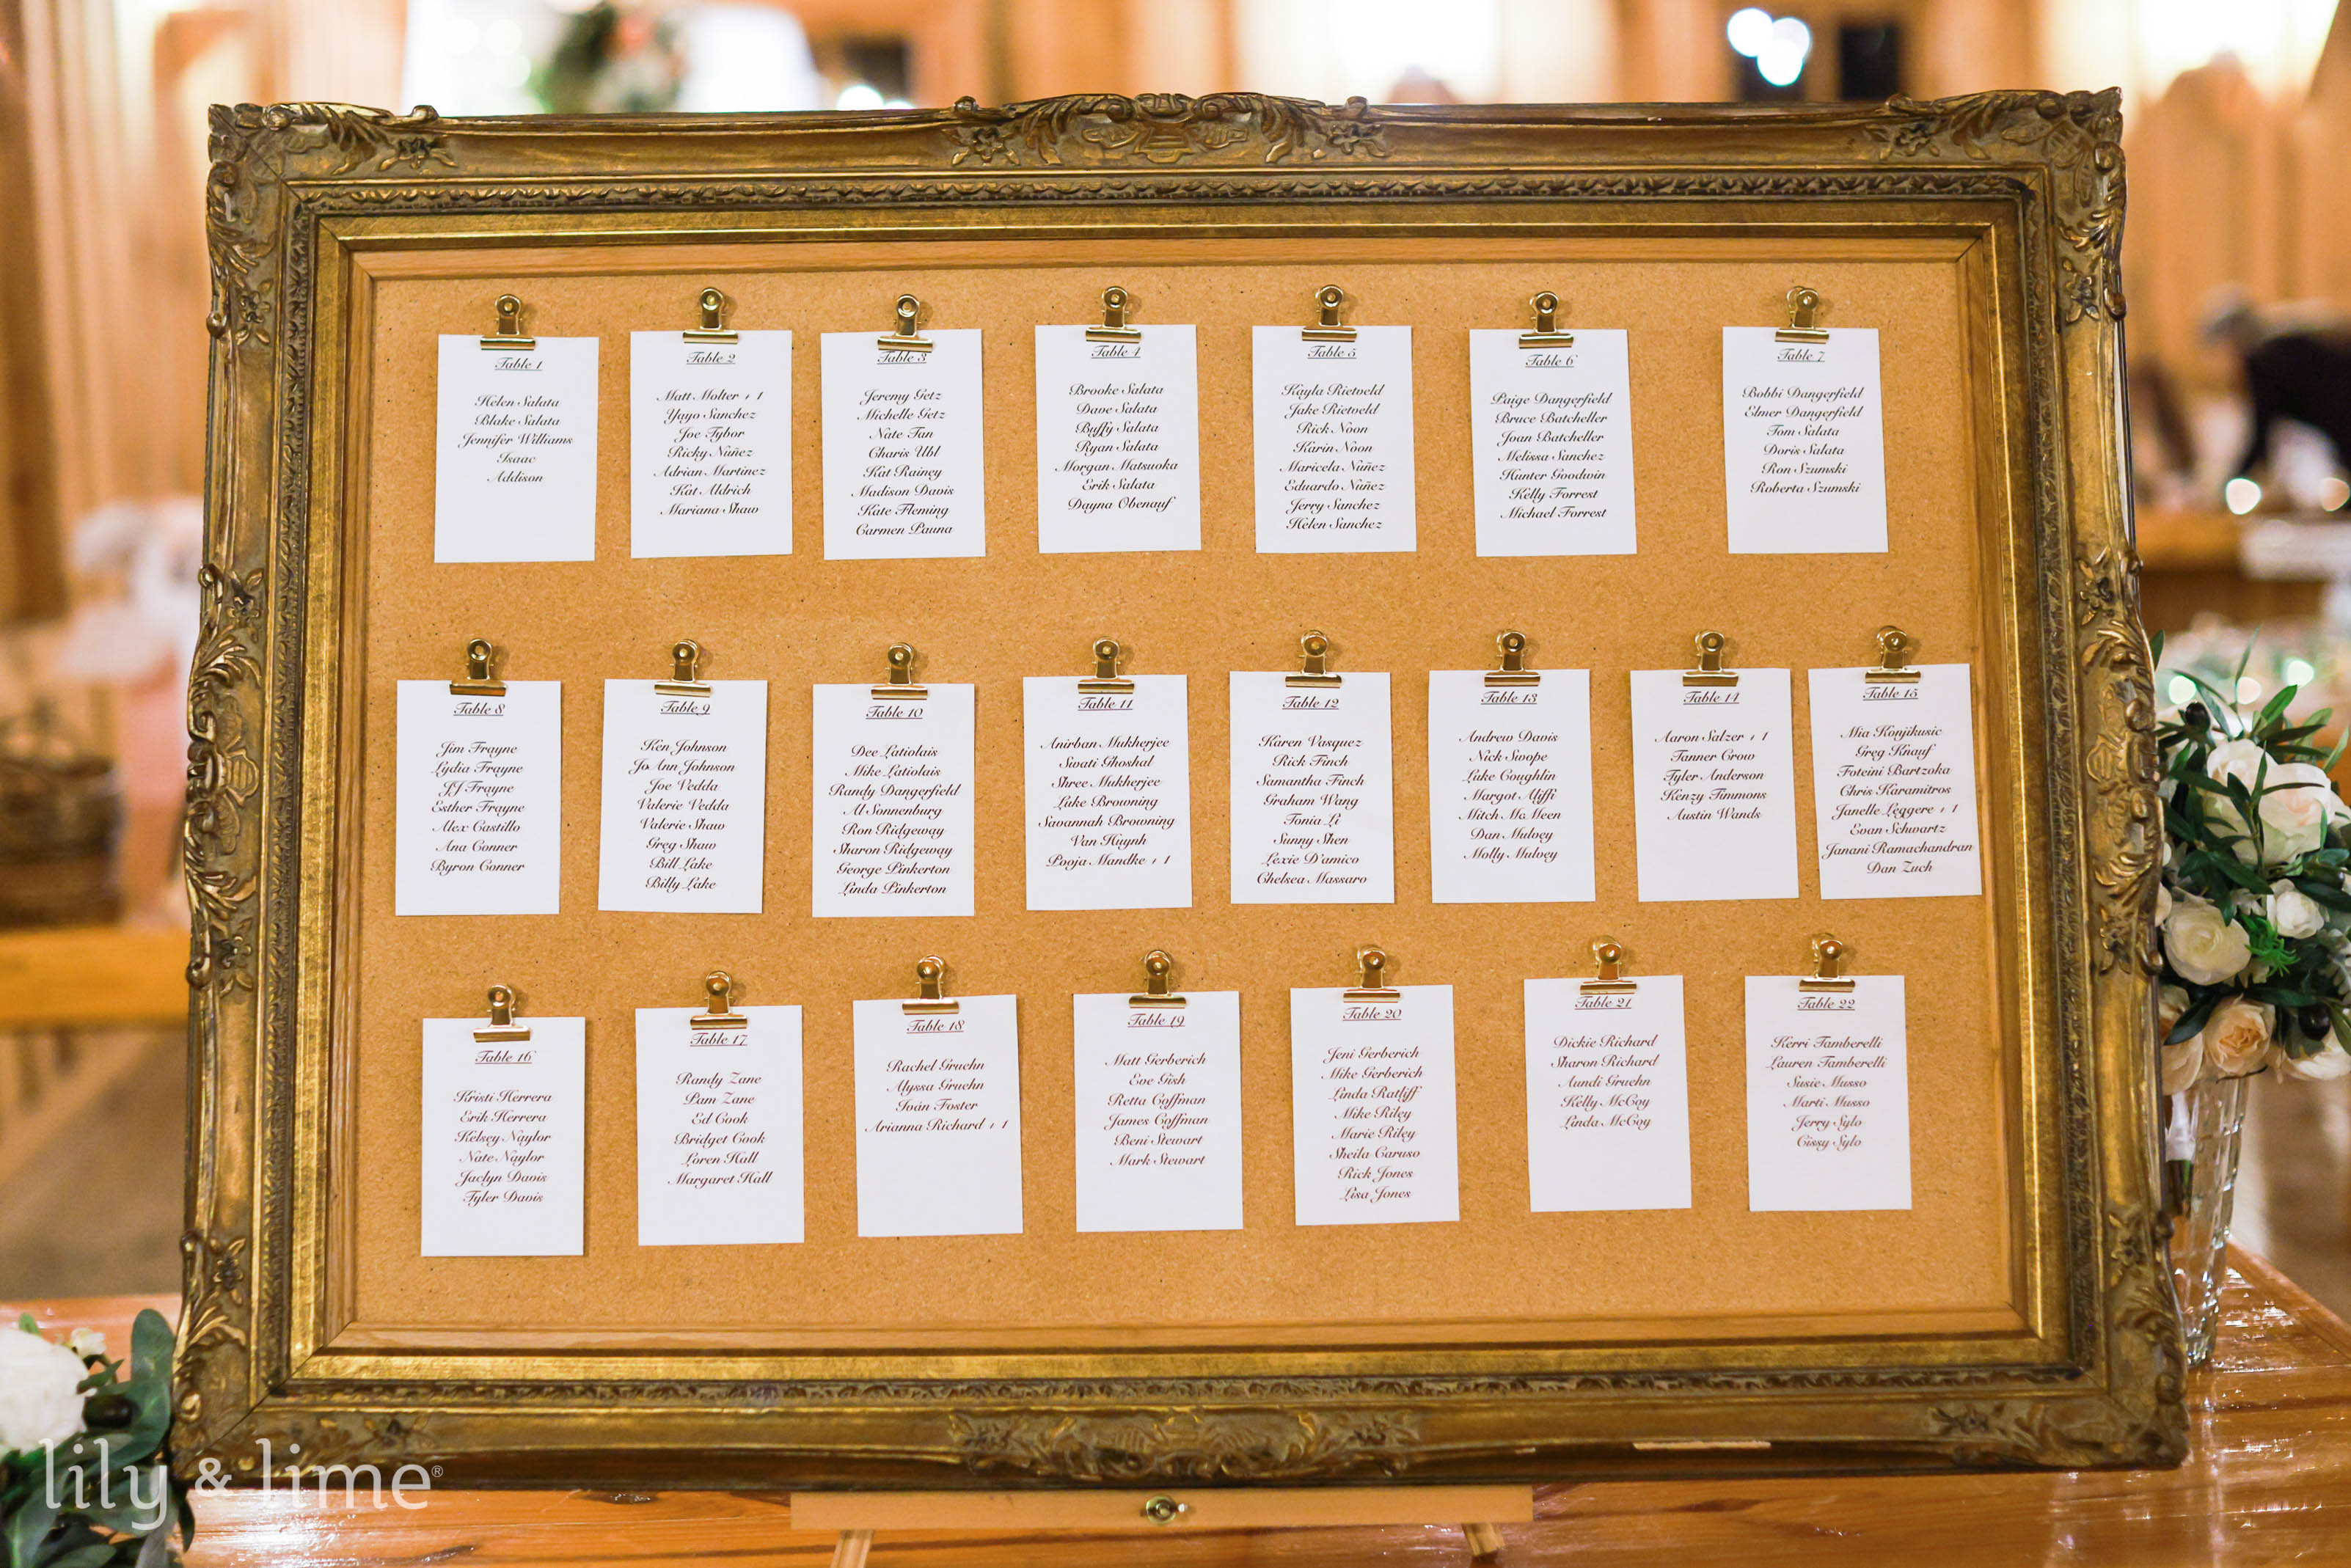 Table 1
Helen Salata
Blake Salata
Jennifer Williams
Isaac
Addison
Table 2
Matt Molter + 1
Yayo Sanchez
Joe Tybor
Ricky Núñez
Adrian Martinez
Kat Aldrich
Mariana Shaw
Table 3
Jeremy Getz
Michelle Getz
Nate Tan
Charis Ubl
Kat Rainey
Madison Davis
Kate Fleming
Carmen Pauna
Table 4
Brooke Salata
Dave Salata
Buffy Salata
Ryan Salata
Morgan Matsuoka
Erik Salata
Dayna Obenauf
Table 5
Kayla Rietveld
Jake Rietveld
Rick Noon
Karin Noon
Maricela Núñez
Eduardo Núñez
Jerry Sanchez
Helen Sanchez
Table 6
Paige Dangerfield
Bruce Batcheller
Joan Batcheller
Melissa Sanchez
Hunter Goodwin
Kelly Forrest
Michael Forrest
Table 7
Bobbi Dangerfield
Elmer Dangerfield
Tom Salata
Doris Salata
Ron Szumski
Roberta Szumski
Table 8
Jim Frayne
Lydia Frayne
JJ Frayne
Esther Frayne
Alex Castillo
Ana Conner
Byron Conner
Table 9
Ken Johnson
Jo Ann Johnson
Joe Vedda
Valerie Vedda
Valerie Shaw
Greg Shaw
Bill Lake
Billy Lake
Table 10
Dee Latiolais
Mike Latiolais
Randy Dangerfield
Al Sonnenburg
Ron Ridgeway
Sharon Ridgeway
George Pinkerton
Linda Pinkerton
Table 11
Anirban Mukherjee
Swati Ghoshal
Shree Mukherjee
Luke Browning
Savannah Browning
Van Huynh
Pooja Mandke + 1
Table 12
Karen Vasquez
Rick Finch
Samantha Finch
Graham Wang
Tonia Li
Sunny Shen
Lexie D'amico
Chelsea Massaro
Table 13
Andrew Davis
Nick Swope
Luke Coughlin
Margot Aliffi
Mitch McMeen
Dan Mulvey
Molly Mulvey
Table 14
Aaron Salzer + 1
Tanner Crow
Tyler Anderson
Kenzy Timmons
Austin Wands
Table 15
Mia Konjikusic
Greg Knauf
Foteini Bartzoka
Chris Karamitros
Janelle Leggere + 1
Evan Schwartz
Janani Ramachandran
Dan Zuch
Table 16
Kristi Herrera
Erik Herrera
Kelsey Naylor
Nate Naylor
Jaclyn Davis
Tyler Davis
Table 17
Randy Zane
Pam Zane
Ed Cook
Bridget Cook
Loren Hall
Margaret Hall
Table 18
Rachel Gruehn
Alyssa Gruehn
Iván Foster
Arianna Richard + 1
Table 19
Matt Gerberich
Eve Gish
Retta Coffman
James Coffman
Beni Stewart
Mark Stewart
Table 20
Jeni Gerberich
Mike Gerberich
Linda Ratliff
Mike Riley
Marie Riley
Sheila Caruso
Rick Jones
Lisa Jones
Table 21
Dickie Richard
Sharon Richard
Aundi Gruehn
Kelly McCoy
Linda McCoy
Table 22
Kerri Tamberelli
Lauren Tamberelli
Susie Musso
Marti Musso
Jerry Sylo
Cissy Sylo
lily & lime®